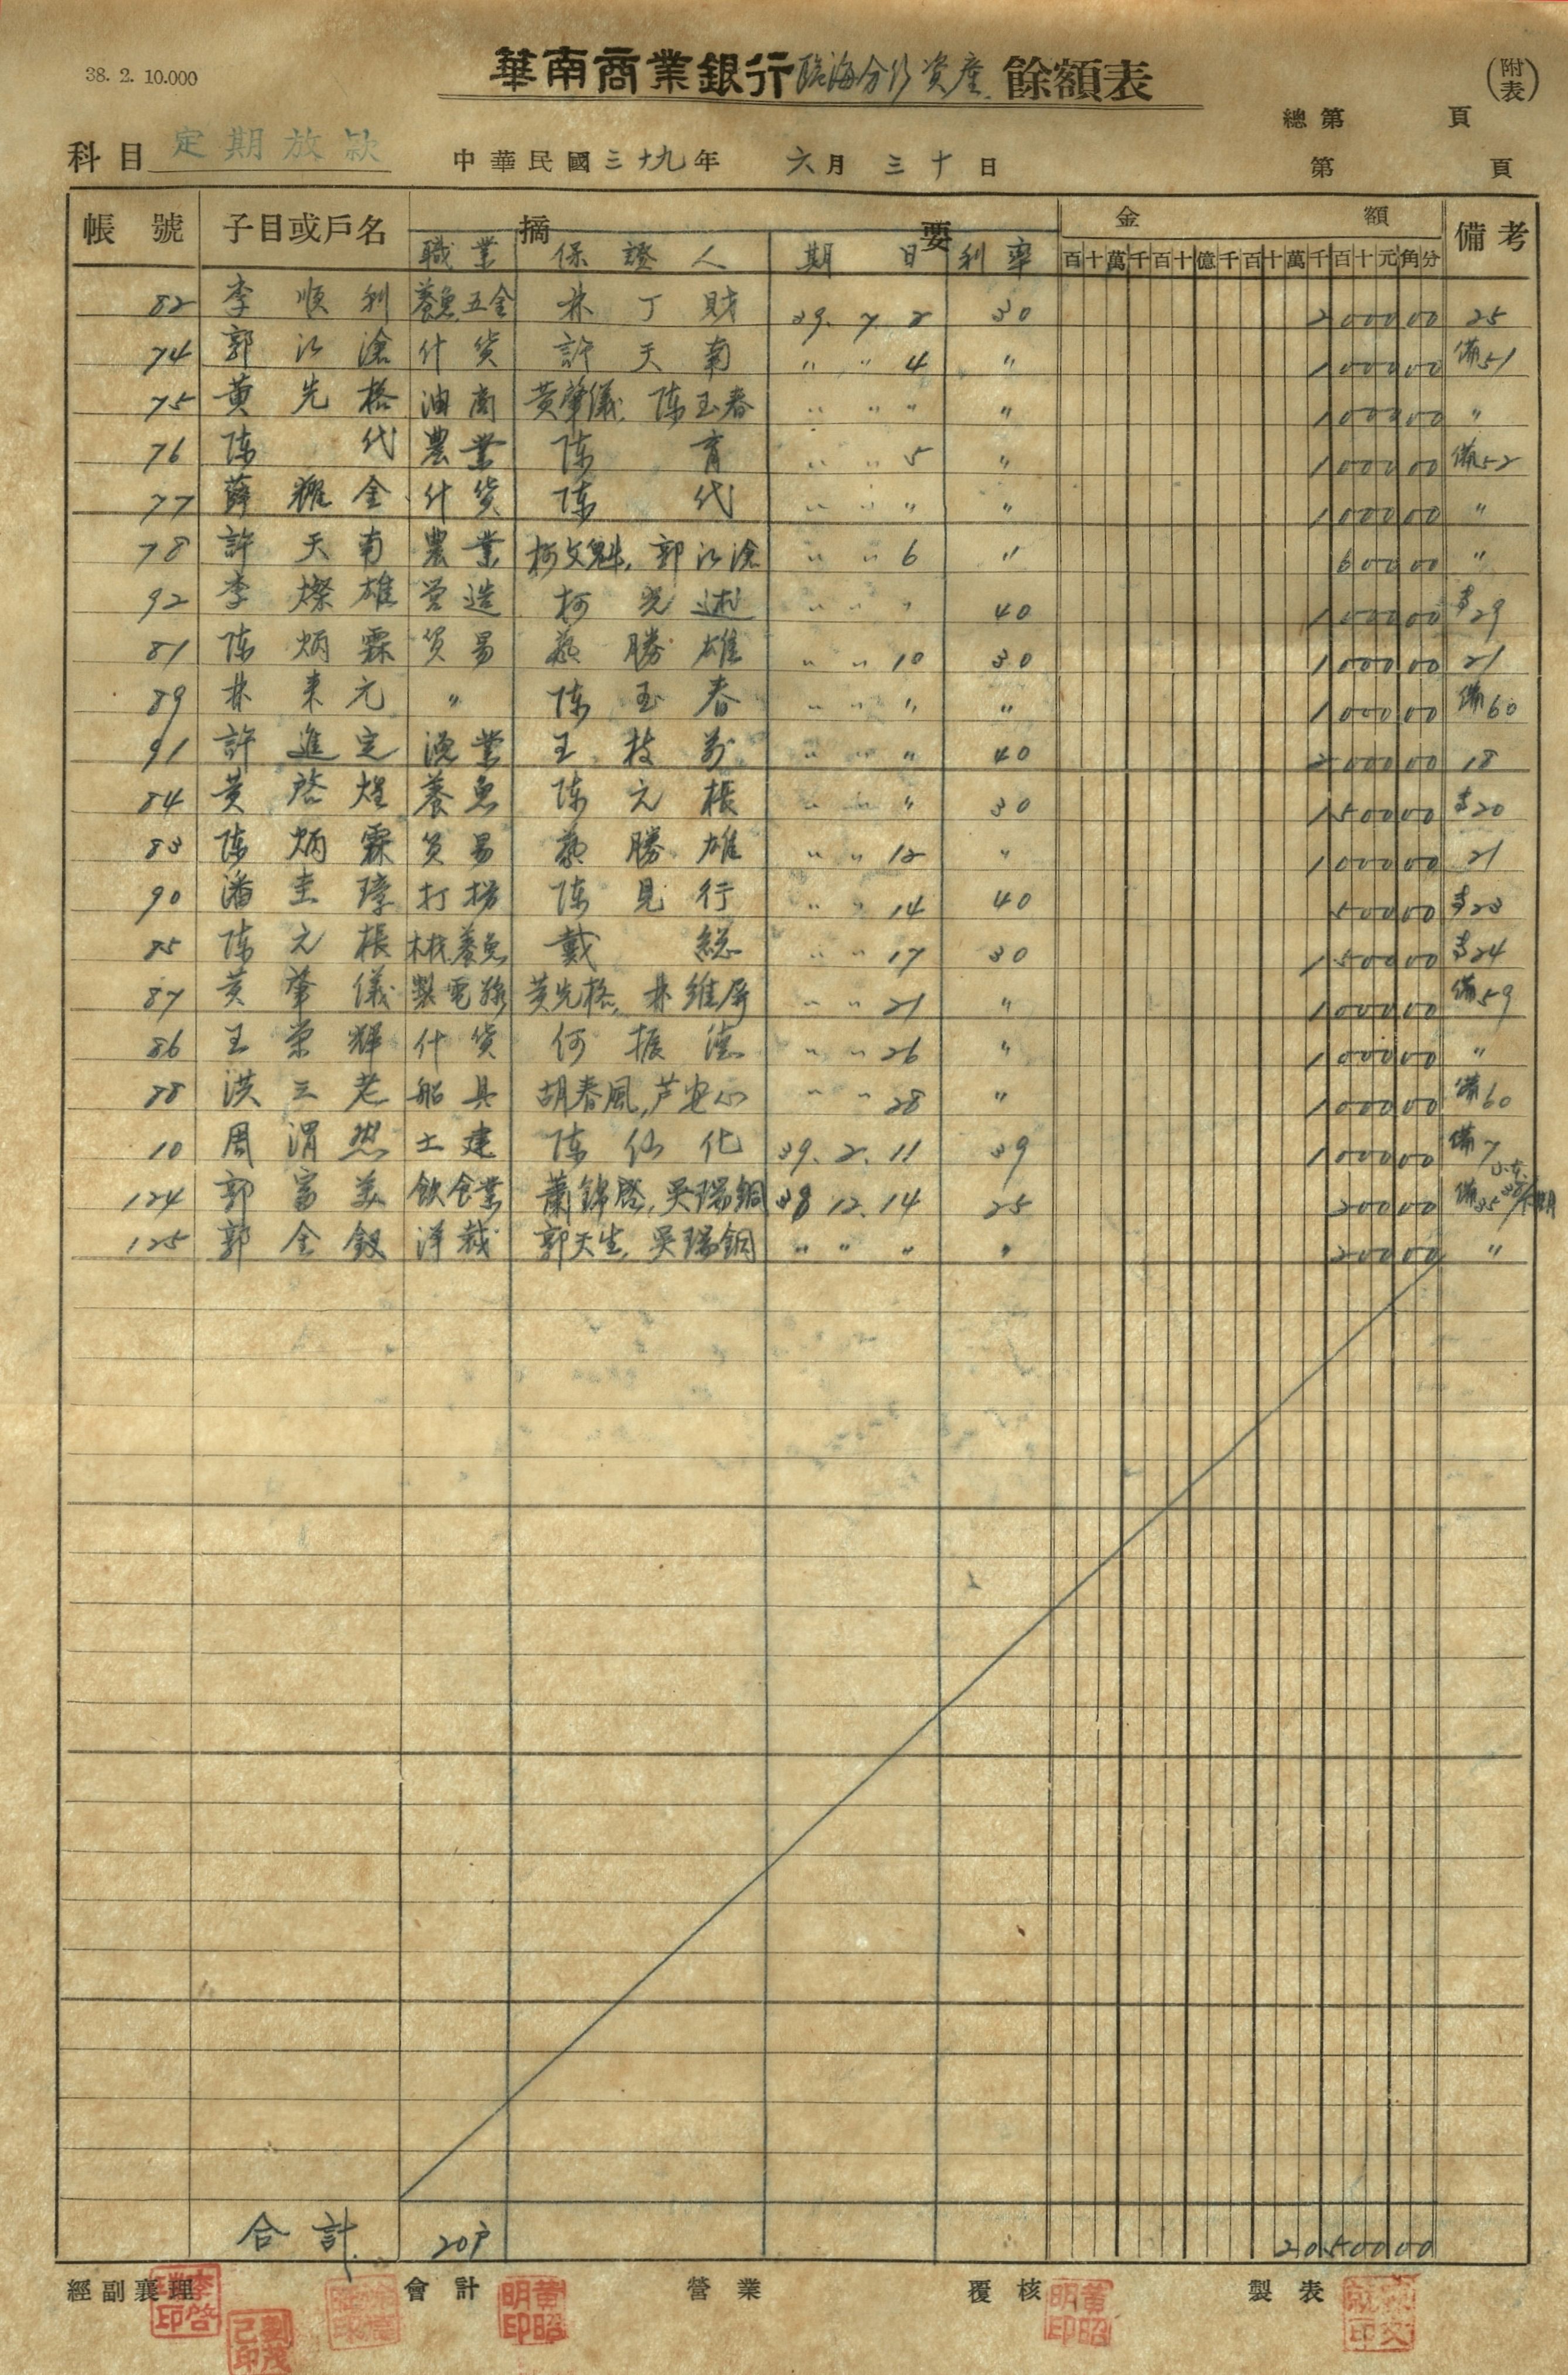 38. 2. 10.000
華南商業銀行臨海分行資產餘額表
(附表)
總第 頁
科目 定期放款 中華民國三十九年 六月三十日 第 頁
帳號 子目或戶名 摘要 金額 備考
職業 保證人 期日 利率 百十萬千百十億千百十萬千百十元角分
82 李順利 養魚.五金 林丁財 39. 7 2 30 2000 00 25
74 郭江滄 什货 許天南 〃 〃 4 〃 1000 00 備51
75 黄先格 油商 黄肇儀. 陈玉春 〃 〃 〃 〃 1000 00 〃
76 陈代 農業 陈育 〃 〃 5 〃 1000 00 備52
77 薛耀金 什货 陈代 〃 〃 〃 〃 1000 00 〃
78 許天南 農業 柯文魁. 郭江滄 〃 〃 6 〃 600 00 〃
92 李燦雄 营造 柯光述 〃 〃 〃 40 1000 00 29
81 陈炳霖 贸易 蔡勝雄 〃 〃 10 30 1000 00 21
89 林来元 〃 陈玉春 〃 〃 〃 〃 1000 00 備60
91 許進定 漁業 王枝 〃 〃 〃 40 2000 00 18
84 黄啓煌 養魚 陈元棖 〃 〃 〃 30 1500 00 20
83 陈炳霖 贸易 蔡勝雄 〃 〃 12 〃 1000 00 21
90 潘圭璋 打撈 陈見行 〃 〃 14 40 500 00 23
85 陈元棖 木材.養魚 戴総 〃 〃 17 30 1500 00 24
87 黄肇儀 製電 黄先格. 林維屏 〃 〃 21 〃 1000 00 備59
86 王荣輝 什货 何振德 〃 〃 26 〃 1000 00 〃
88 洪三老 船具 胡春風,芦安心 〃 〃 28 〃 1000 00 備60
10 周渭然 土建 陈仙化 39. 2. 11 39 1000 00 備7
124 郭富美 飲食業 蕭錦啓, 吳瑞銅 38 12. 14 25 200 00 備35
125 郭金釵 洋裁 郭天生, 吳瑞銅 〃 〃 〃 〃 200 00 〃
合計 20戶 20500 00
經副襄理 會計 營業 覆核 製表
黃昭明印 黃昭明印